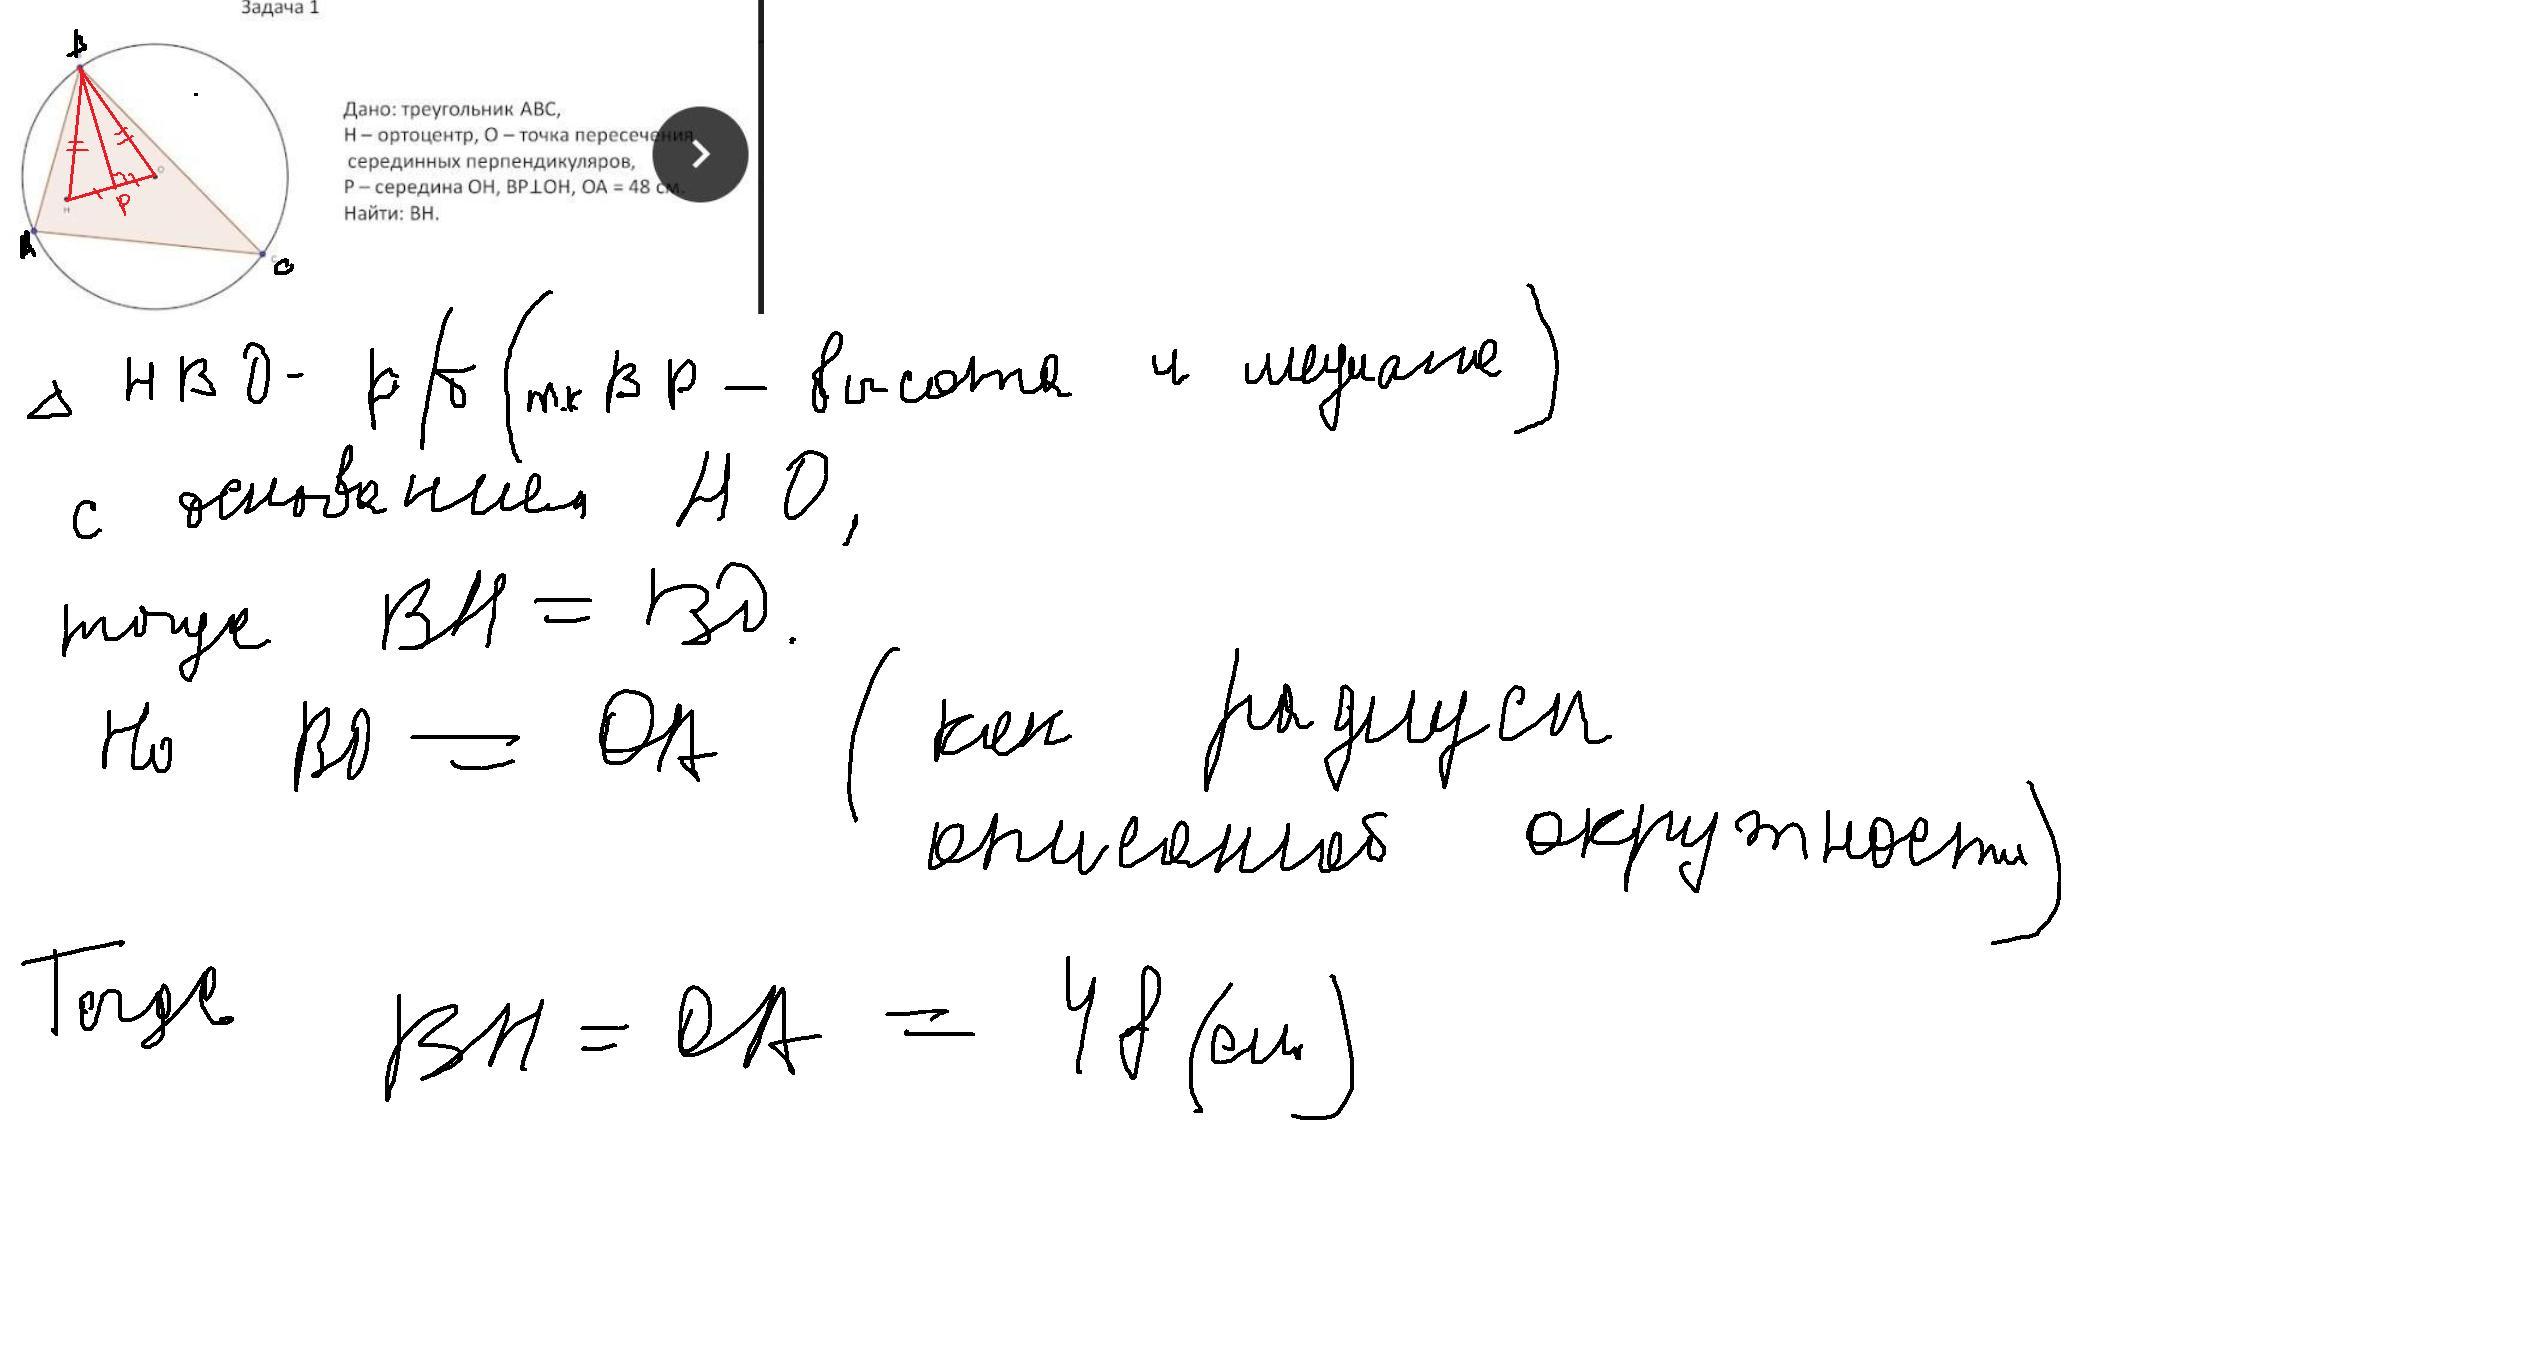 Задача 1
B
O
H
P
A
C
C
Дано: треугольник ABC,
H – ортоцентр, O – точка пересечения
серединных перпендикуляров,
P – середина OH, BP⊥OH, OA = 48 см.
Найти: BH.
△ HBO - р/б (т.к BP – высота и медиана)
с основанием HO,
тогда BH = BO.
Но BO = OA (как радиусы
описанной окружности)
Тогда BH = OA = 48 (см)